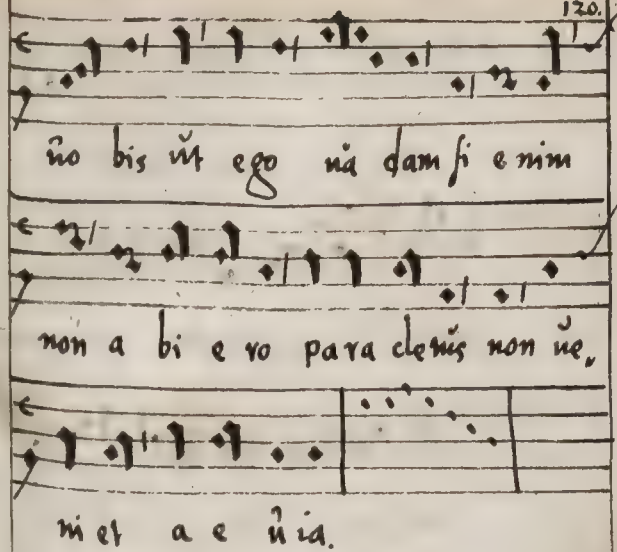 120.
uo bis ut ego ua dam si enim
non a bi e ro para cletus non ue„
niet a e uia.